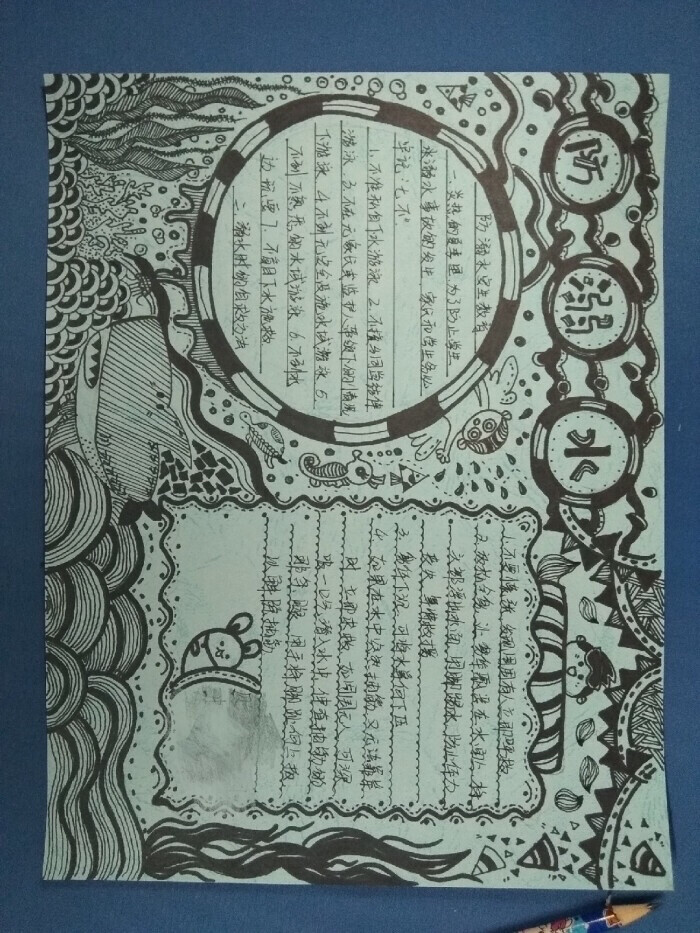 防溺水
防溺水安全教育
一、炎热的夏季里为了防止学生
溺水事故的发生 家长和学生务必
牢记"七不"
1.不准私自下水游泳 2.不擅自同学结伴
游泳 3.不在无家长或监护人带领下的情况
下游泳 4.不到无安全设施水域游泳 5.
不到不熟悉的水域游泳 6.不到水
边玩耍 7.不盲目下水施救
二、溺水时的自救方法
1.不要慌张 发现周围有人立即呼救
2.放松全身 让身体飘浮在水面上 将
头部浮出水面 用脚踢水 防止体力
丧失 等待救援
3.身体下沉 可将手掌向下压
4.如果在水中突然抽筋 又无法靠岸
时 立即求救 如周围无人 可深
吸一口气 潜入水中 伸直抽筋的
那条腿 用手将脚趾向上扳
以解除抽筋